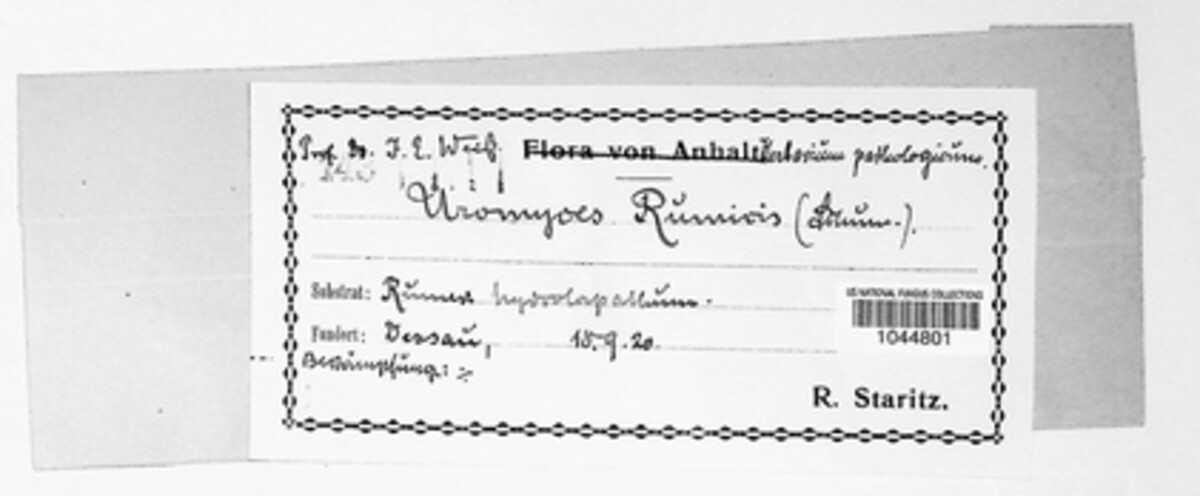 Prof. Dr. J. E. Weiß Flora von Anhalt Herbarium pathologicum.
Uromyces Rumicis (Schum.).
Substrat: Rumex hydrolapathum.
US NATIONAL FUNGUS COLLECTIONS
1044801
Fundort: Dessau, 18.9.20.
Bekämpfung: ÷
R. Staritz.